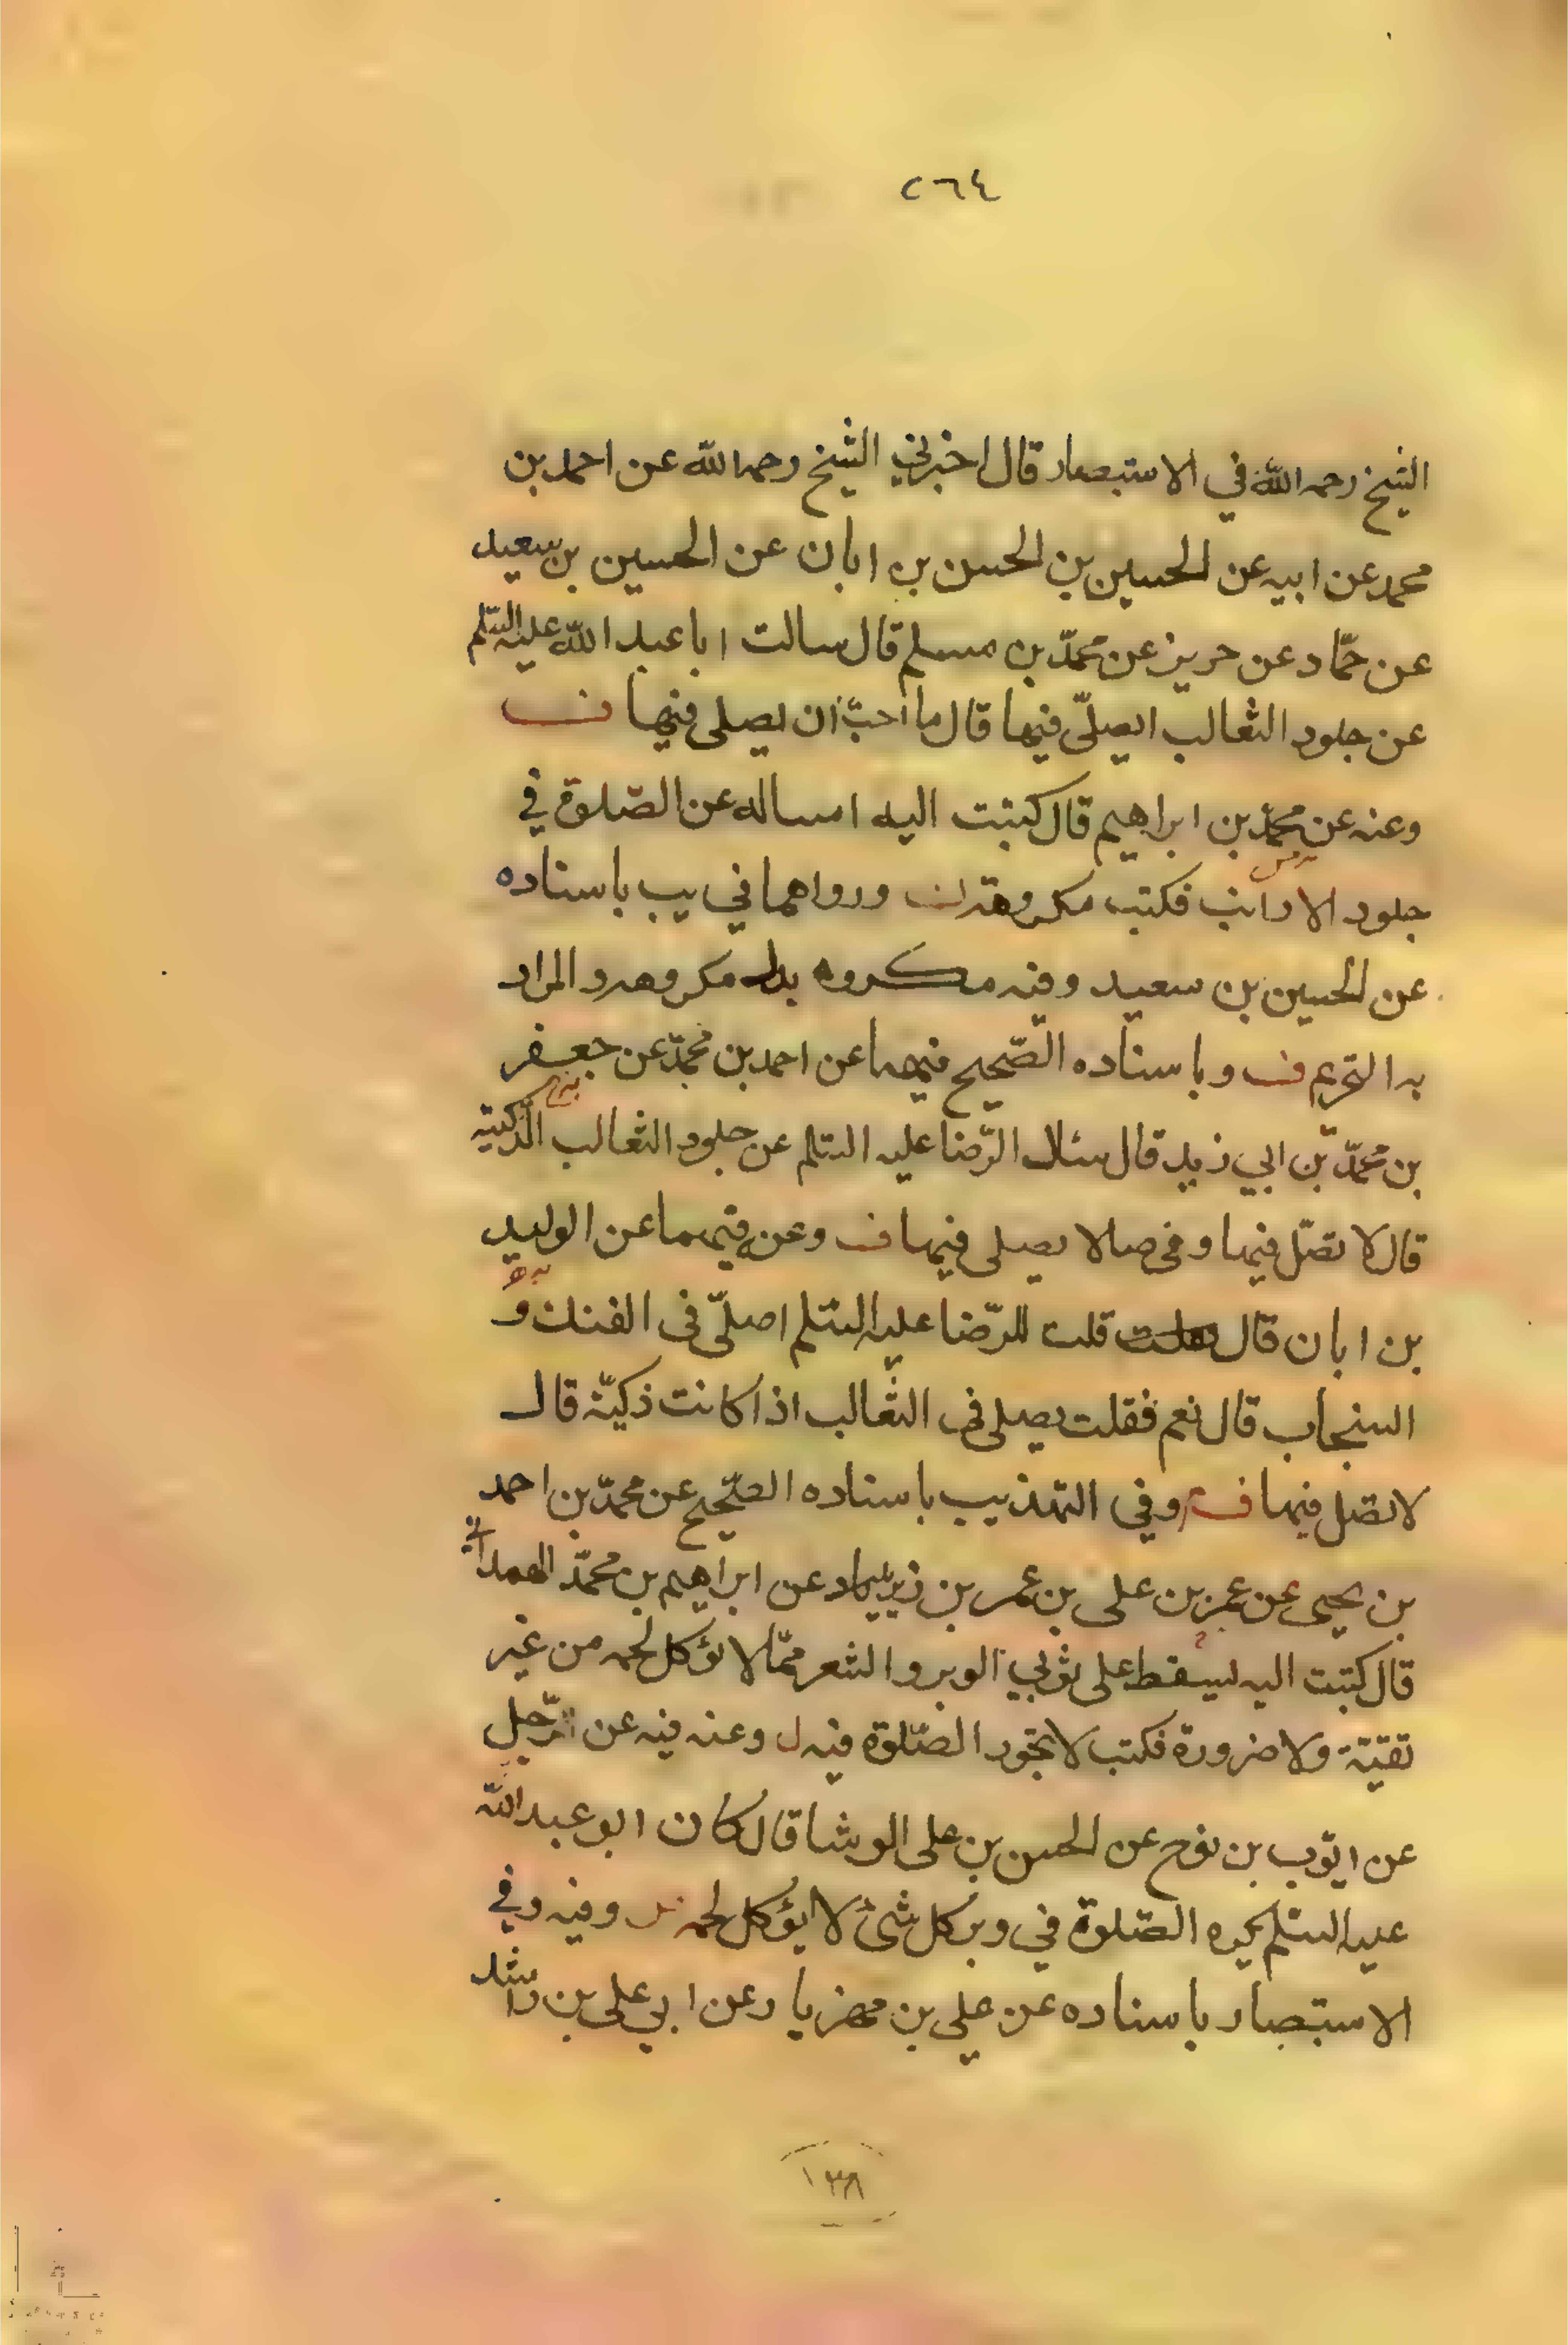 ٢٦٤
الشيخ رحمه الله في الاستبصار قال اخبرني الشيخ رحمه الله عن احمد بن
محمد عن ابيه عن الحسين بن الحسن بن ابان عن الحسين بن سعيد
عن حمّاد عن حريز عن محمّد بن مسلم قال سالت ابا عبد الله عليه السّلم
عن جلود الثعالب ايصلّى فيها قال ما احبّ ان يصلى فيها ف
وعنه عن محمّد بن ابراهيم قال كتبت اليه اساله عن الصّلوة في
جلود الارانب فكتب مكروهة ورواهما في يب باسناده
عن الحسين بن سعيد وفيه مكروه بدل مكروهه والمراد
به التحريم ف وباسناده الصّحيح فيهما عن احمد بن محمّد عن جعفر
بن محمّد بن ابي زيد قال سئل الرّضا عليه السلم عن جلود الثعالب الذّكيّة
قال لا تصلّ فيها وفي صا لا يصلى فيها ف وعنه فيهما عن الوليد
بن ابان قال قلت للرّضا عليه السّلم اصلّي في الفنك و
السنجاب قال نعم فقلت يصلى في الثعالب اذا كانت ذكيّة قال
لا تصل فيها ف وفي التهذيب باسناده الصّحيح عن محمّد بن احمد
بن يحيى عن عمر بن على بن عمر بن يزيد عن ابراهيم بن محمّد الهمداني
قال كتبت اليه يسقط على ثوبي الوبر والشعر ممّا لا يؤكل لحمه من غير
تقيّة ولا ضرورة فكتب لا تجوز الصّلوة فيه ل وعنه فيه عن الرّجل
عن ايّوب بن نوح عن الحسن بن على الوشا قال كان ابو عبد الله
عليه السلم يكره الصّلوة في وبر كل شئ لا يؤكل لحمه وفيه وفي
الاستبصار باسناده عن على بن مهزيار عن ابي على بن راشد
١٣٨